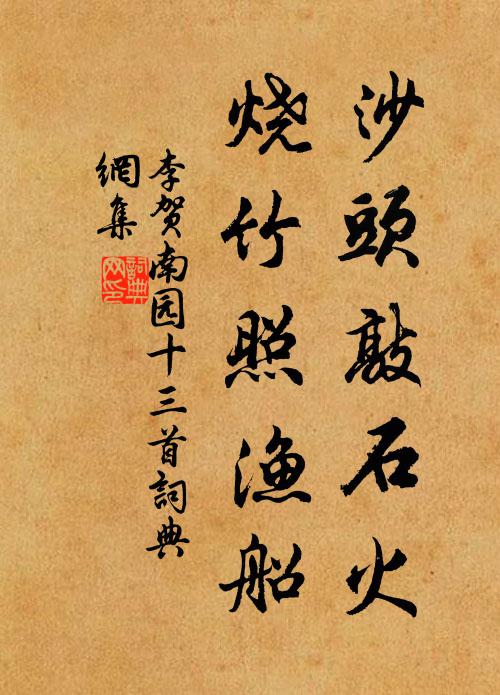 沙頭敲石火
烧竹照渔船
李贺南园十三首詞典
網集
詞典
网印